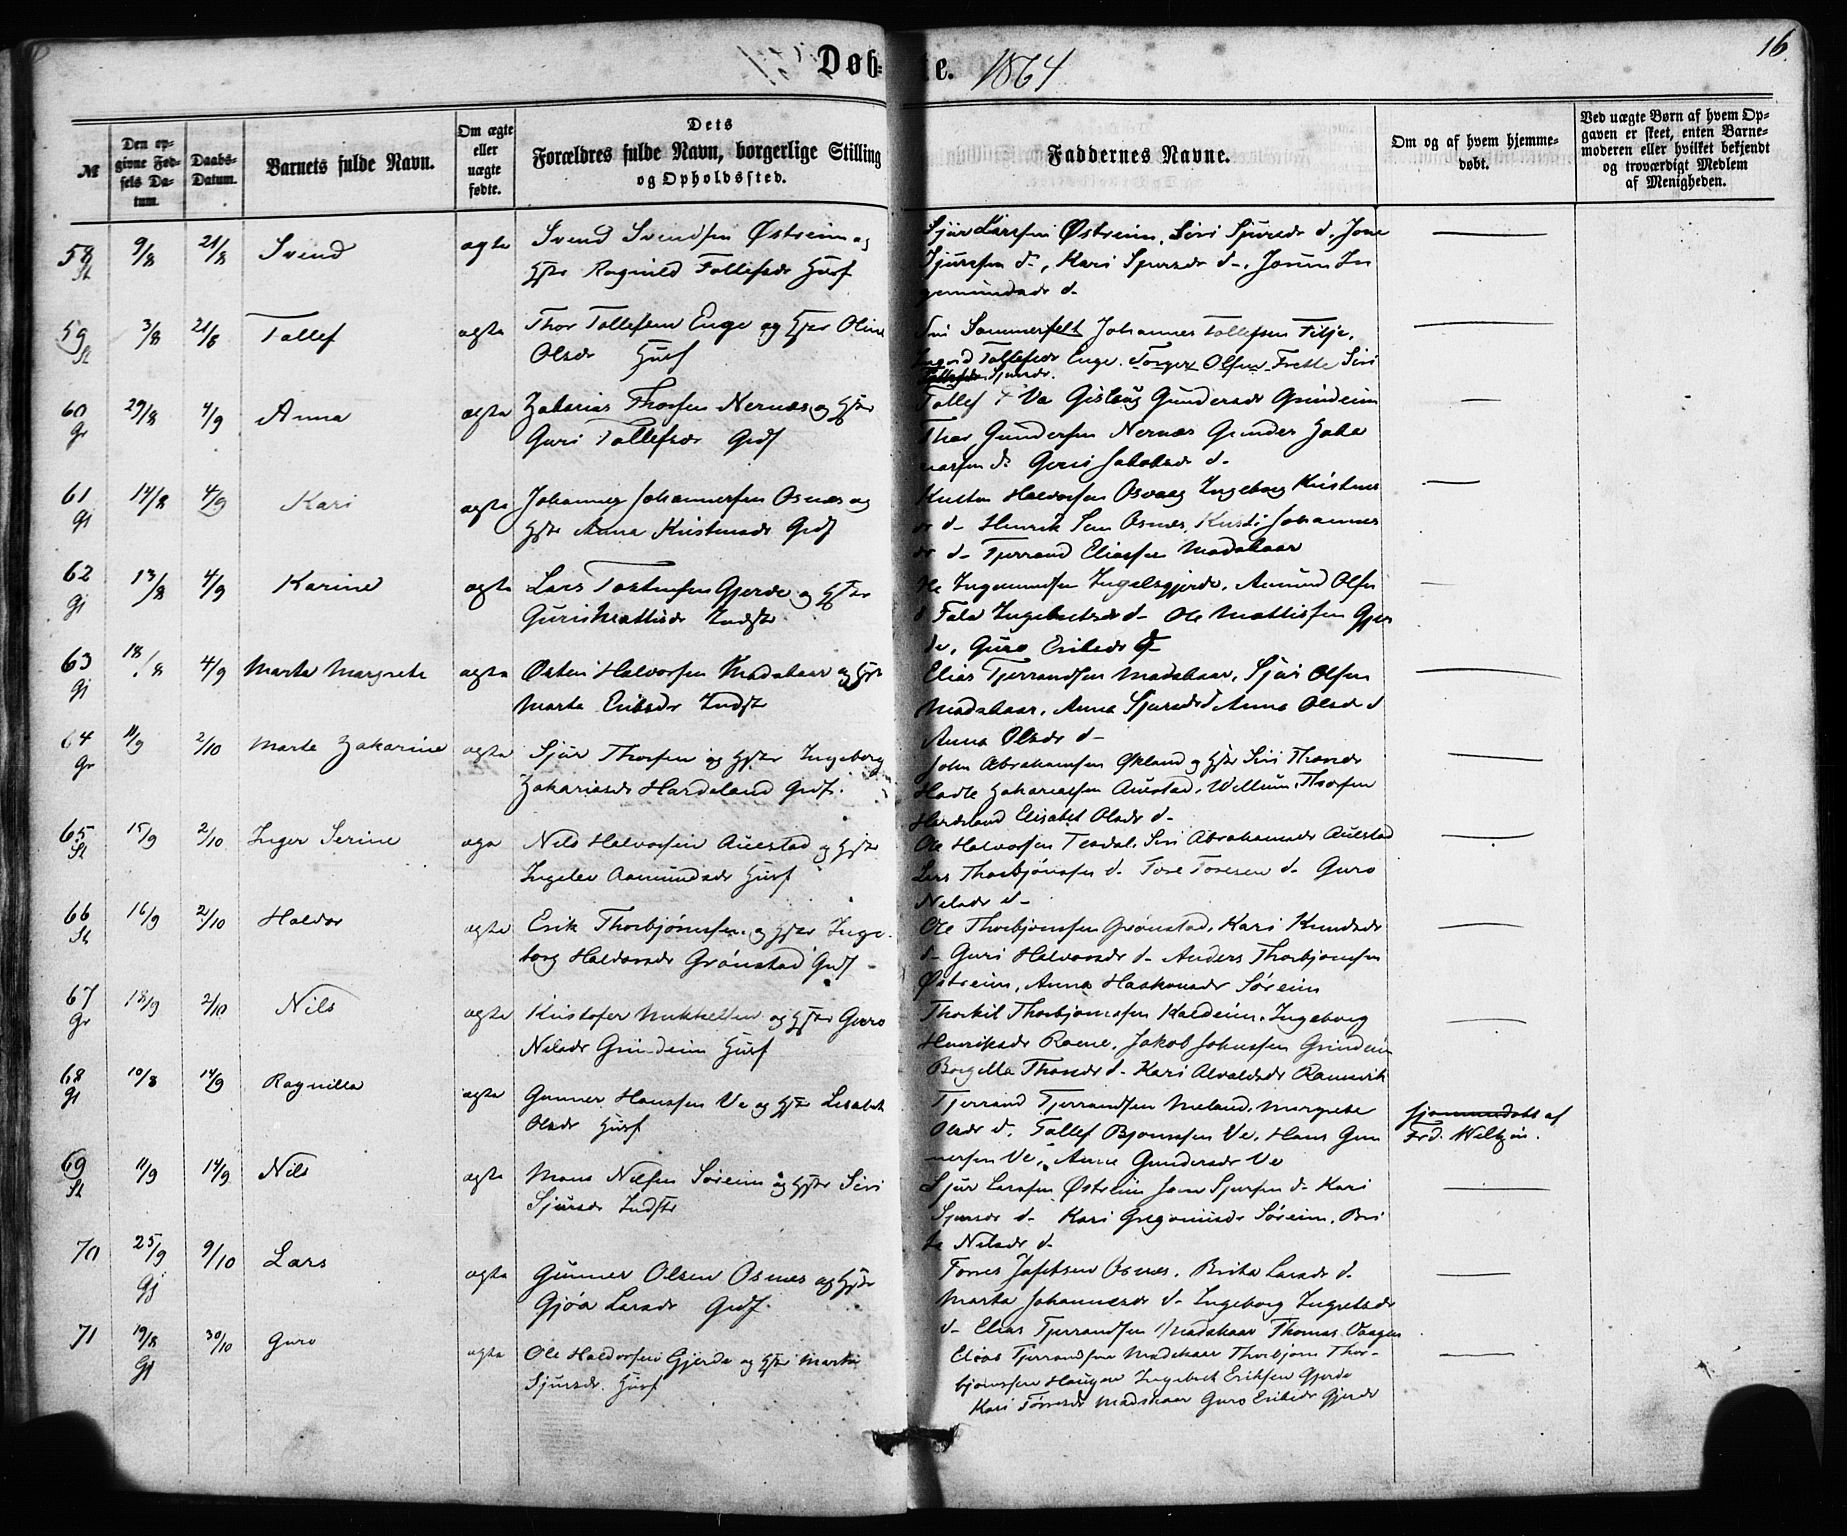 Døb- e. 1864
16.
№
Den opgivne Fødsels Datum.
Daabs-Datum.
Barnets fulde Navn.
Om ægte eller uægte fødte.
Dets Forældres fulde Navn, borgerlige Stilling og Opholdssted.
Faddernes Navne.
Om og af hvem hjemmedøbt.
Ved uægte Børn af hvem Opgaven er skeet, enten Barnemoderen eller hvilket bekjendt og troværdigt Medlem af Menigheden.
58 9/8 21/8 Svend ægte Svend Svendsen Østreim og
Hstr Ragnild Tollefsdr Husf
Sjur Larsen Østreim, Siri Sjursdr d., Jone
Sjursen d-, Kari Sjursdr d-. Jorun In
gemundsdr d-
59 3/8 21/8 Tollef ægte Thor Tollefsen Enge og Hstr Oline
Olsdr Husf
Sommerfelt Johannes Tollefsen Filje,
Tollefsdr Enge. Torger Olsen Frette Siri
Sjursdr.
60 Gr 29/8 4/9 Anna ægte Zakarias Thorsen Nernæs og Hstr
Guri Tollefsdr Grdf
Tollef Va Gislaug Gundersdr Grindeim
Thor Gundersen Nernæs Gunder Zaka
riasen d- Guri Jakobsdr d-
61 Gj 14/8 4/9 Kari ægte Johannes Johannessen Osnæs og
Hstr Anna Kristensdr Grdf
Halvorsen Osvaag Ingeborg Kristens
dr d- Henrik Osnæs, Johannes
dr d- Tjerrand Eliassen Madskaar
62 Gj 13/8 4/9 Karine ægte Lars Tostensen Gjerde og Hstr
Guri Mattisdr Indst
Ole Ingemundsen Ingelsgjerde, Amund Olsen
d- Ingebretsdr d- Ole Mattissen Gjer
de, Guro Eriksdr d-
63 Gj 18/8 4/9 Marta Margrete ægte Østen Halvorsen Madskaar og Hstr
Marta Eriksdr Indst
Elias Tjerrandsen Madskaar, Sjur Olsen
Madskaar, Anna Sjursdr d Anna Olsdr d
Anna Olsdr d-
64 Gr 11/9 2/10 Marte Zakarine ægte Sjur Thorsen og Hstr Ingeborg
Zakariasdr Hardeland Grdf.
John Abrahamsen Økland og Hstr Siri Thorsdr
Zakariassen Austad, Thorsen
Hardeland Elisabet Olsdr d-
65 15/9 2/10 Inger Serine Nils Halvorsen Austad og Hstr
Aamundsdr Husf
Ole Halvorsen Teadal, Siri Abrahamsdr Austad
Lars Thorbjørnsen d- Tore Toresen d- Guro
Nilsdr d-
66 16/9 2/10 Haldor ægte Erik Thorbjørnsen og Hstr Inge-
borg Haldorsdr Grønstad Grdf
Ole Thorbjørnsen Grønstad, Kari Knudsdr
d- Guri Halvorsdr d- Anders Thorbjørnsen
Østreim, Anna Haakonsdr Søreim
67 Gr 18/9 2/10 Nils ægte Kristofer Mikkelsen og Hstr Guro
Nilsdr Grindeim Husf
Thorkil Thorbjørnsen Kaldeim, Ingeborg
Henriksdr Jakob Johnsen Grindeim
Thorsdr d- Kari Ramsvik
68 Gj 10/8 14/9 Ragnilla ægte Gunner Hansen Ve og Hstr Lisabet
Olsdr Husf
Tjerrand Tjerrandsen Meland, Margrete
Olsdr d, Tollef Bjørnsen Ve, Hans Gun
nersen Ve, Anna Gundersdr Ve
hjemmedøbt af
Frd. Weltzin.
69 11/9 14/9 Nils ægte Mons Nilsen Søreim og Hstr Siri
Sjursdr Indst
Sjur Larsen Østreim Jone Sjursen d- Kari
Sjursdr d- Kari Gregoriusdr Søreim, Bri
ta Nilsdr d-
70 25/9 Gj 9/10 Lars ægte Gunner Olsen Osnæs og Hstr
Gjøa Larsdr Grdf.
Tørres Jafetsen Osnæs, Brita Larsdr d-
Marta Johannesdr d- Ingeborg
d- Elias Tjerrandsen Madskaar Thomas Vaagen
71 19/8 Gj 30/10 Guro ægte Ole Haldorsen Gjerde og Hstr Marta
Sjursdr. Husf
Elias Tjerrandsen Madskaar Thorbjørn Thor-
bjørnsen Haugen Ingebret Eriksen Gjerde
Kari Tørresdr Madskaar Guro Eriksdr Gjerde